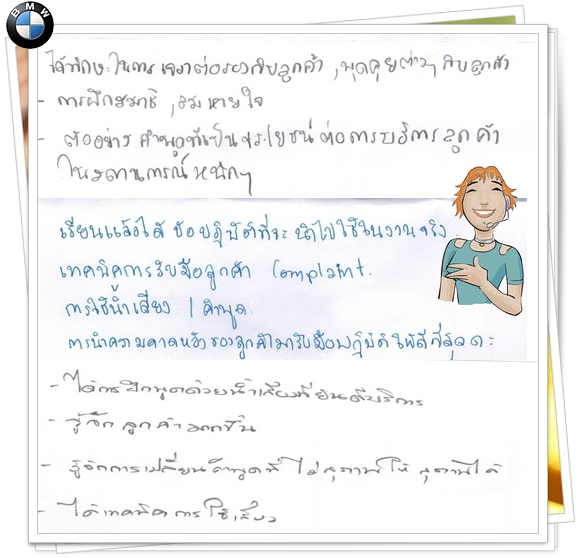 BMW
ได้ทักษะในการเจรจาต่อรองกับลูกค้า , พูดคุยต่างๆ กับลูกค้า
- การฝึกสมาธิ , ลมหายใจ
- ตัวอย่าง คำพูดที่เป็นประโยชน์ ต่อการบริการลูกค้า
ในสถานการณ์หนักๆ
เรียนแล้วได้ ข้อปฏิบัติที่จะ นำไปใช้ในงานจริง
เทคนิคการรับมือลูกค้า Complaint.
การใช้น้ำเสียง / คำพูด
การนำความคาดหวังของลูกค้ามารับมือปฏิบัติ ให้ดีที่สุดค่ะ
- ได้การฝึกพูดด้วยน้ำเสียงที่ยินดีบริการ
- รู้จัก ลูกค้า มากขึ้น
- รู้จักการเปลี่ยนคำพูดที่ ไม่สุภาพให้ สุภาพได้
- ได้เทคนิค การ ใช้เสียง